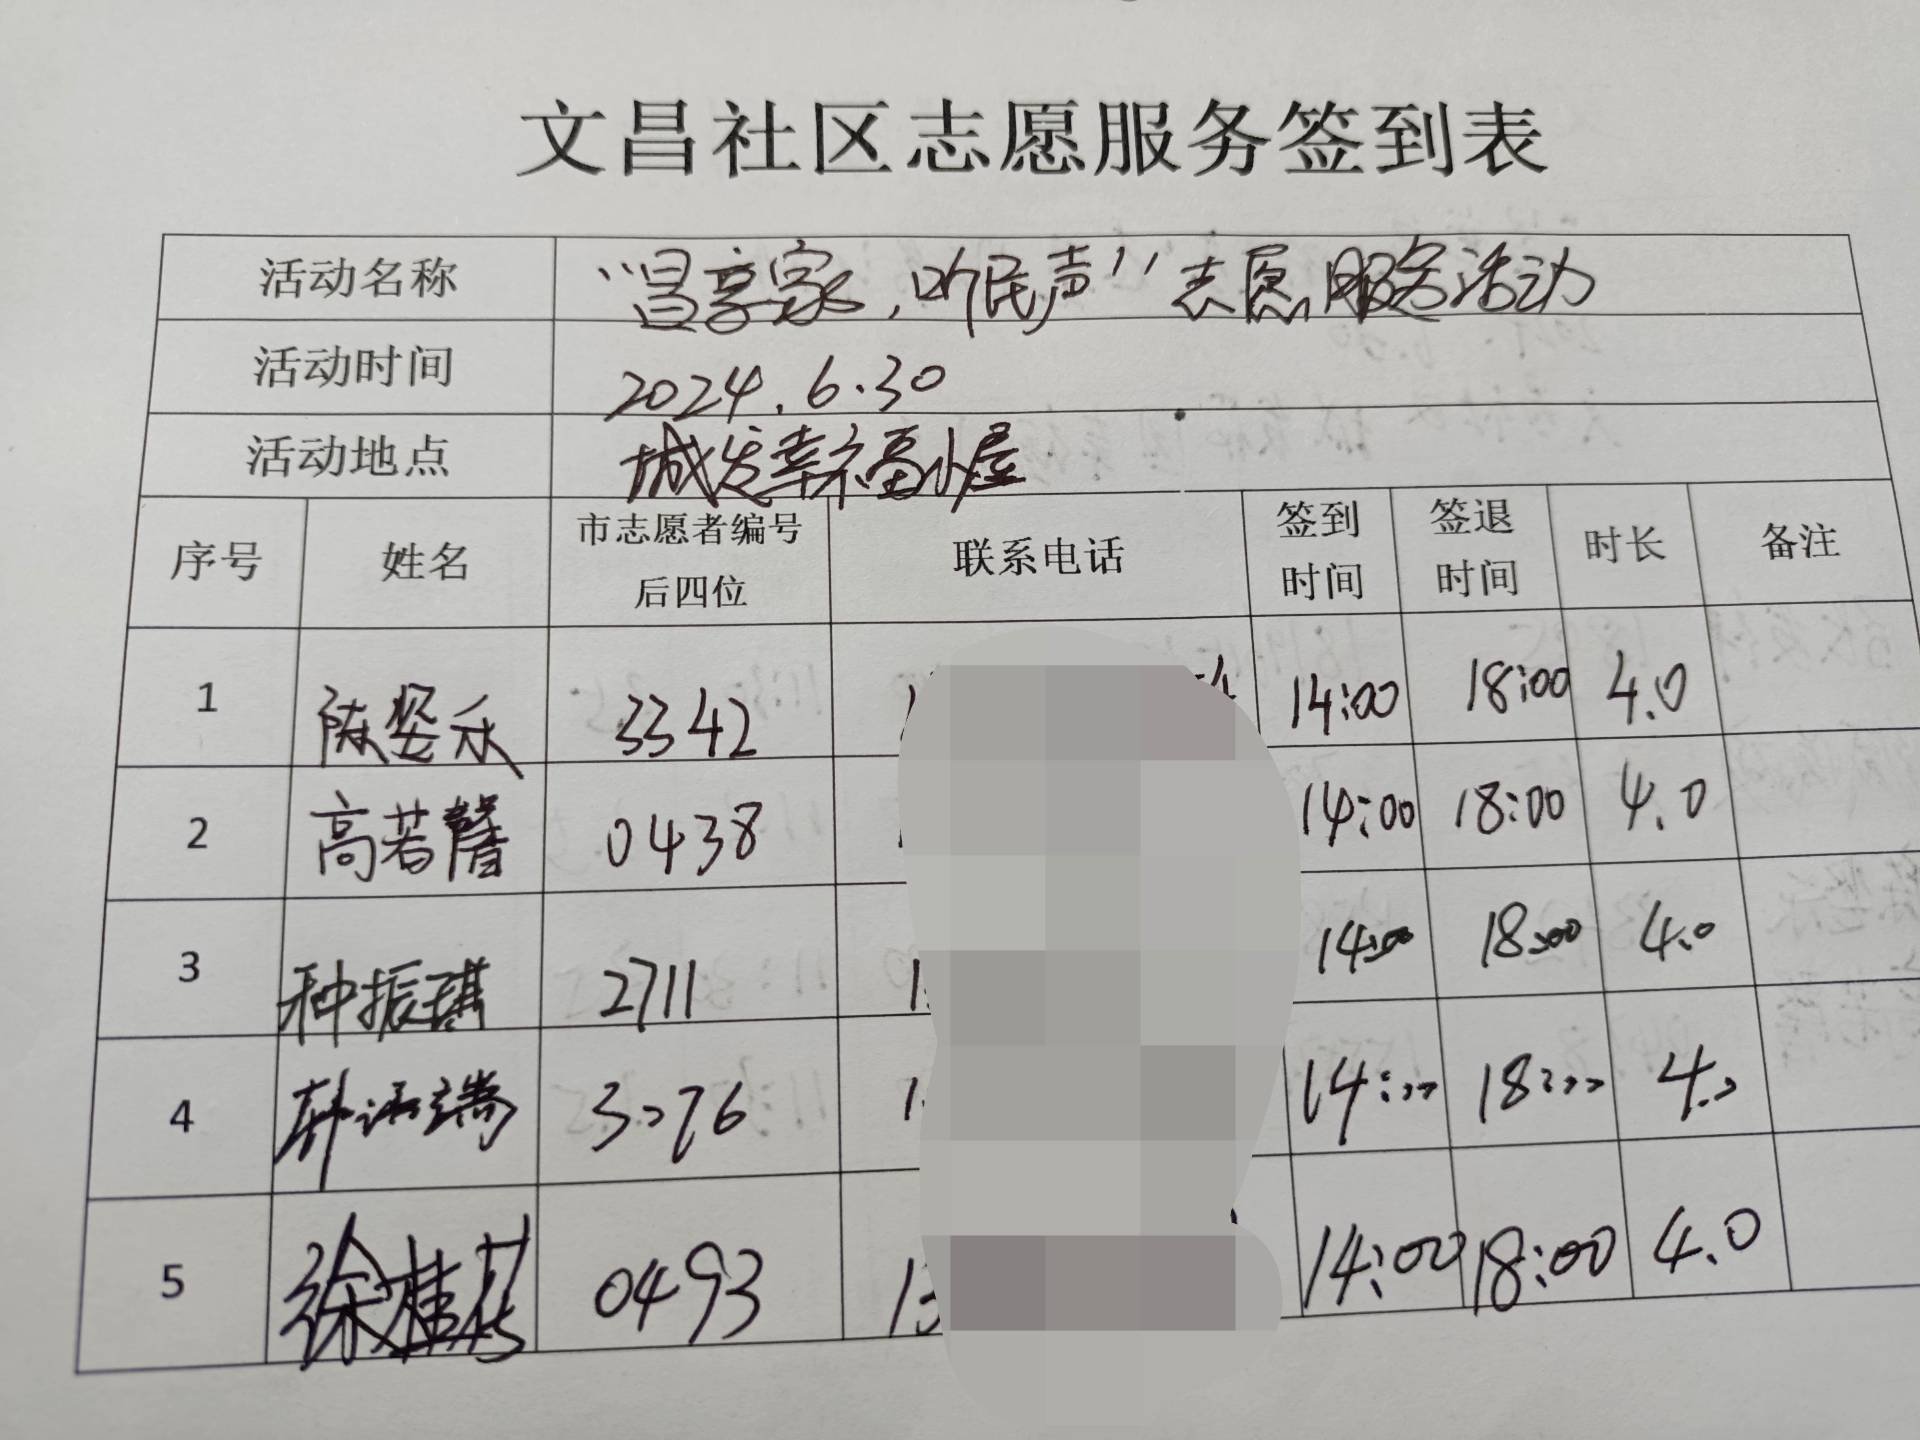 文昌社区志愿服务签到表
活动名称 “昌享家,听民声”志愿服务活动
活动时间 2024.6.30
活动地点 城发幸福小屋
序号 姓名 市志愿者编号后四位 联系电话 签到时间 签退时间 时长 备注
1 陈姿禾 3342 14:00 18:00 4.0
2 高若馨 0438 14:00 18:00 4.0
3 种振琪 2711 14:00 18:00 4.0
4 韩语端 3076 14:00 18:00 4.0
5 徐桂花 0493 13 14:00 18:00 4.0